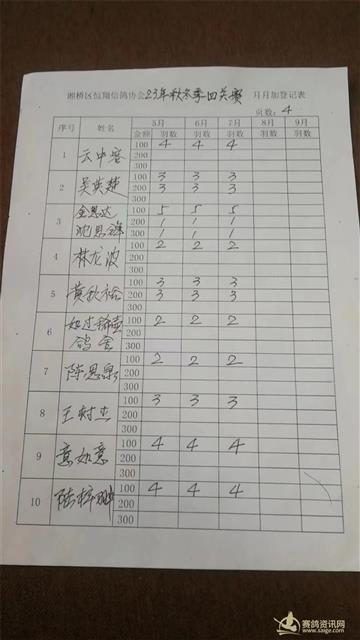 湘桥区恒翔信鸽协会23年秋冬季四关赛 月月加登记表
页数: 4
序号 姓名 5月 6月 7月 8月 9月
金额 羽数 羽数 羽数 羽数 羽数
1 云中客 100 4 4 4
200
300
2 吴英楚 100 3 3 3
200 3 3 3
300
3 金思达 100 5 5 5
200 1 1 1
300 1 1 1
4 林龙波 100 2 2 2
200
300
5 黄秋裕 100 3 3 3
200 3 3 3
300
6 100 2 2 2
鸽舍 200
300
7 陈思泉 100 2 2 2
200
300
8 王树杰 100 3 3 3
200
300
9 意如意 100 4 4 4
200
300
10 陆梓珊 100 4 4 4
200
300
赛鸽资讯网
www.saige.com